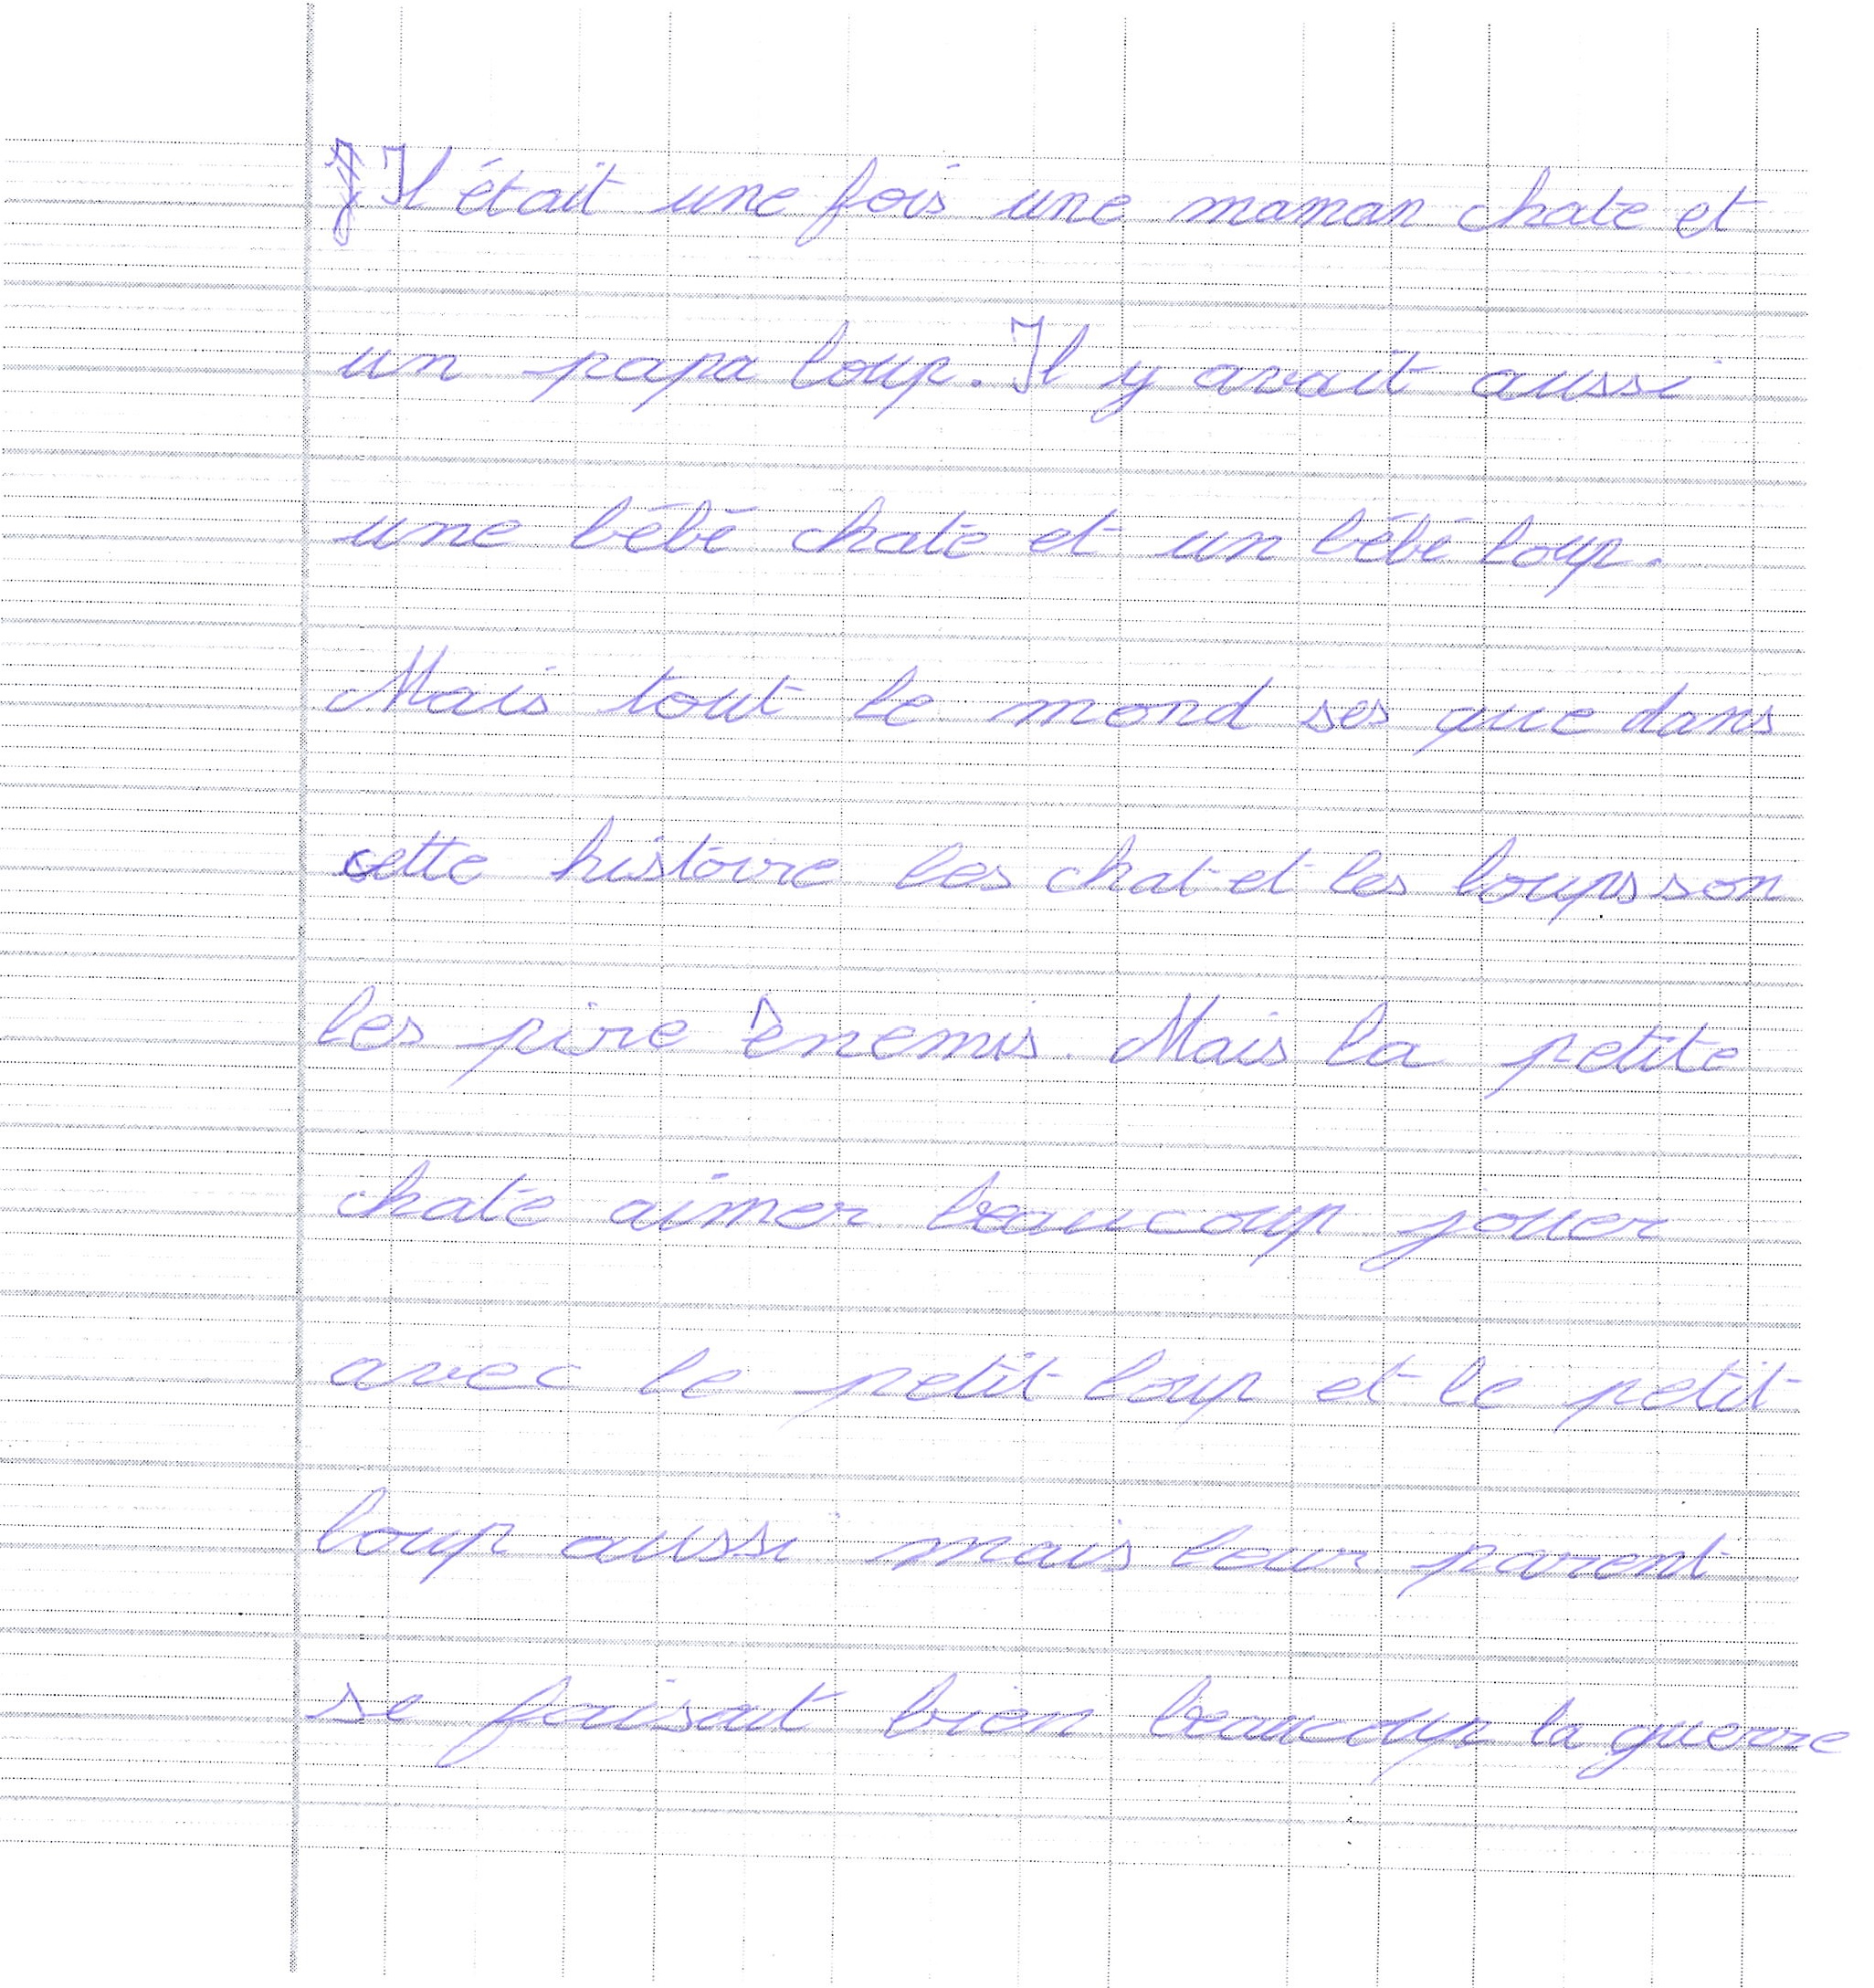 Il était une fois une maman chate et
un papa loup. Il y avait aussi
une bébé chate et un bébé loup.
Mais tout le mond ses que dans
cette histoire les chat et les loups son
les pire ènemis. Mais la petite
chate aimer beaucoup jouer
avec le petit loup et le petit
loup aussi mais leur parent
se faisait bien beaucoup la guerre